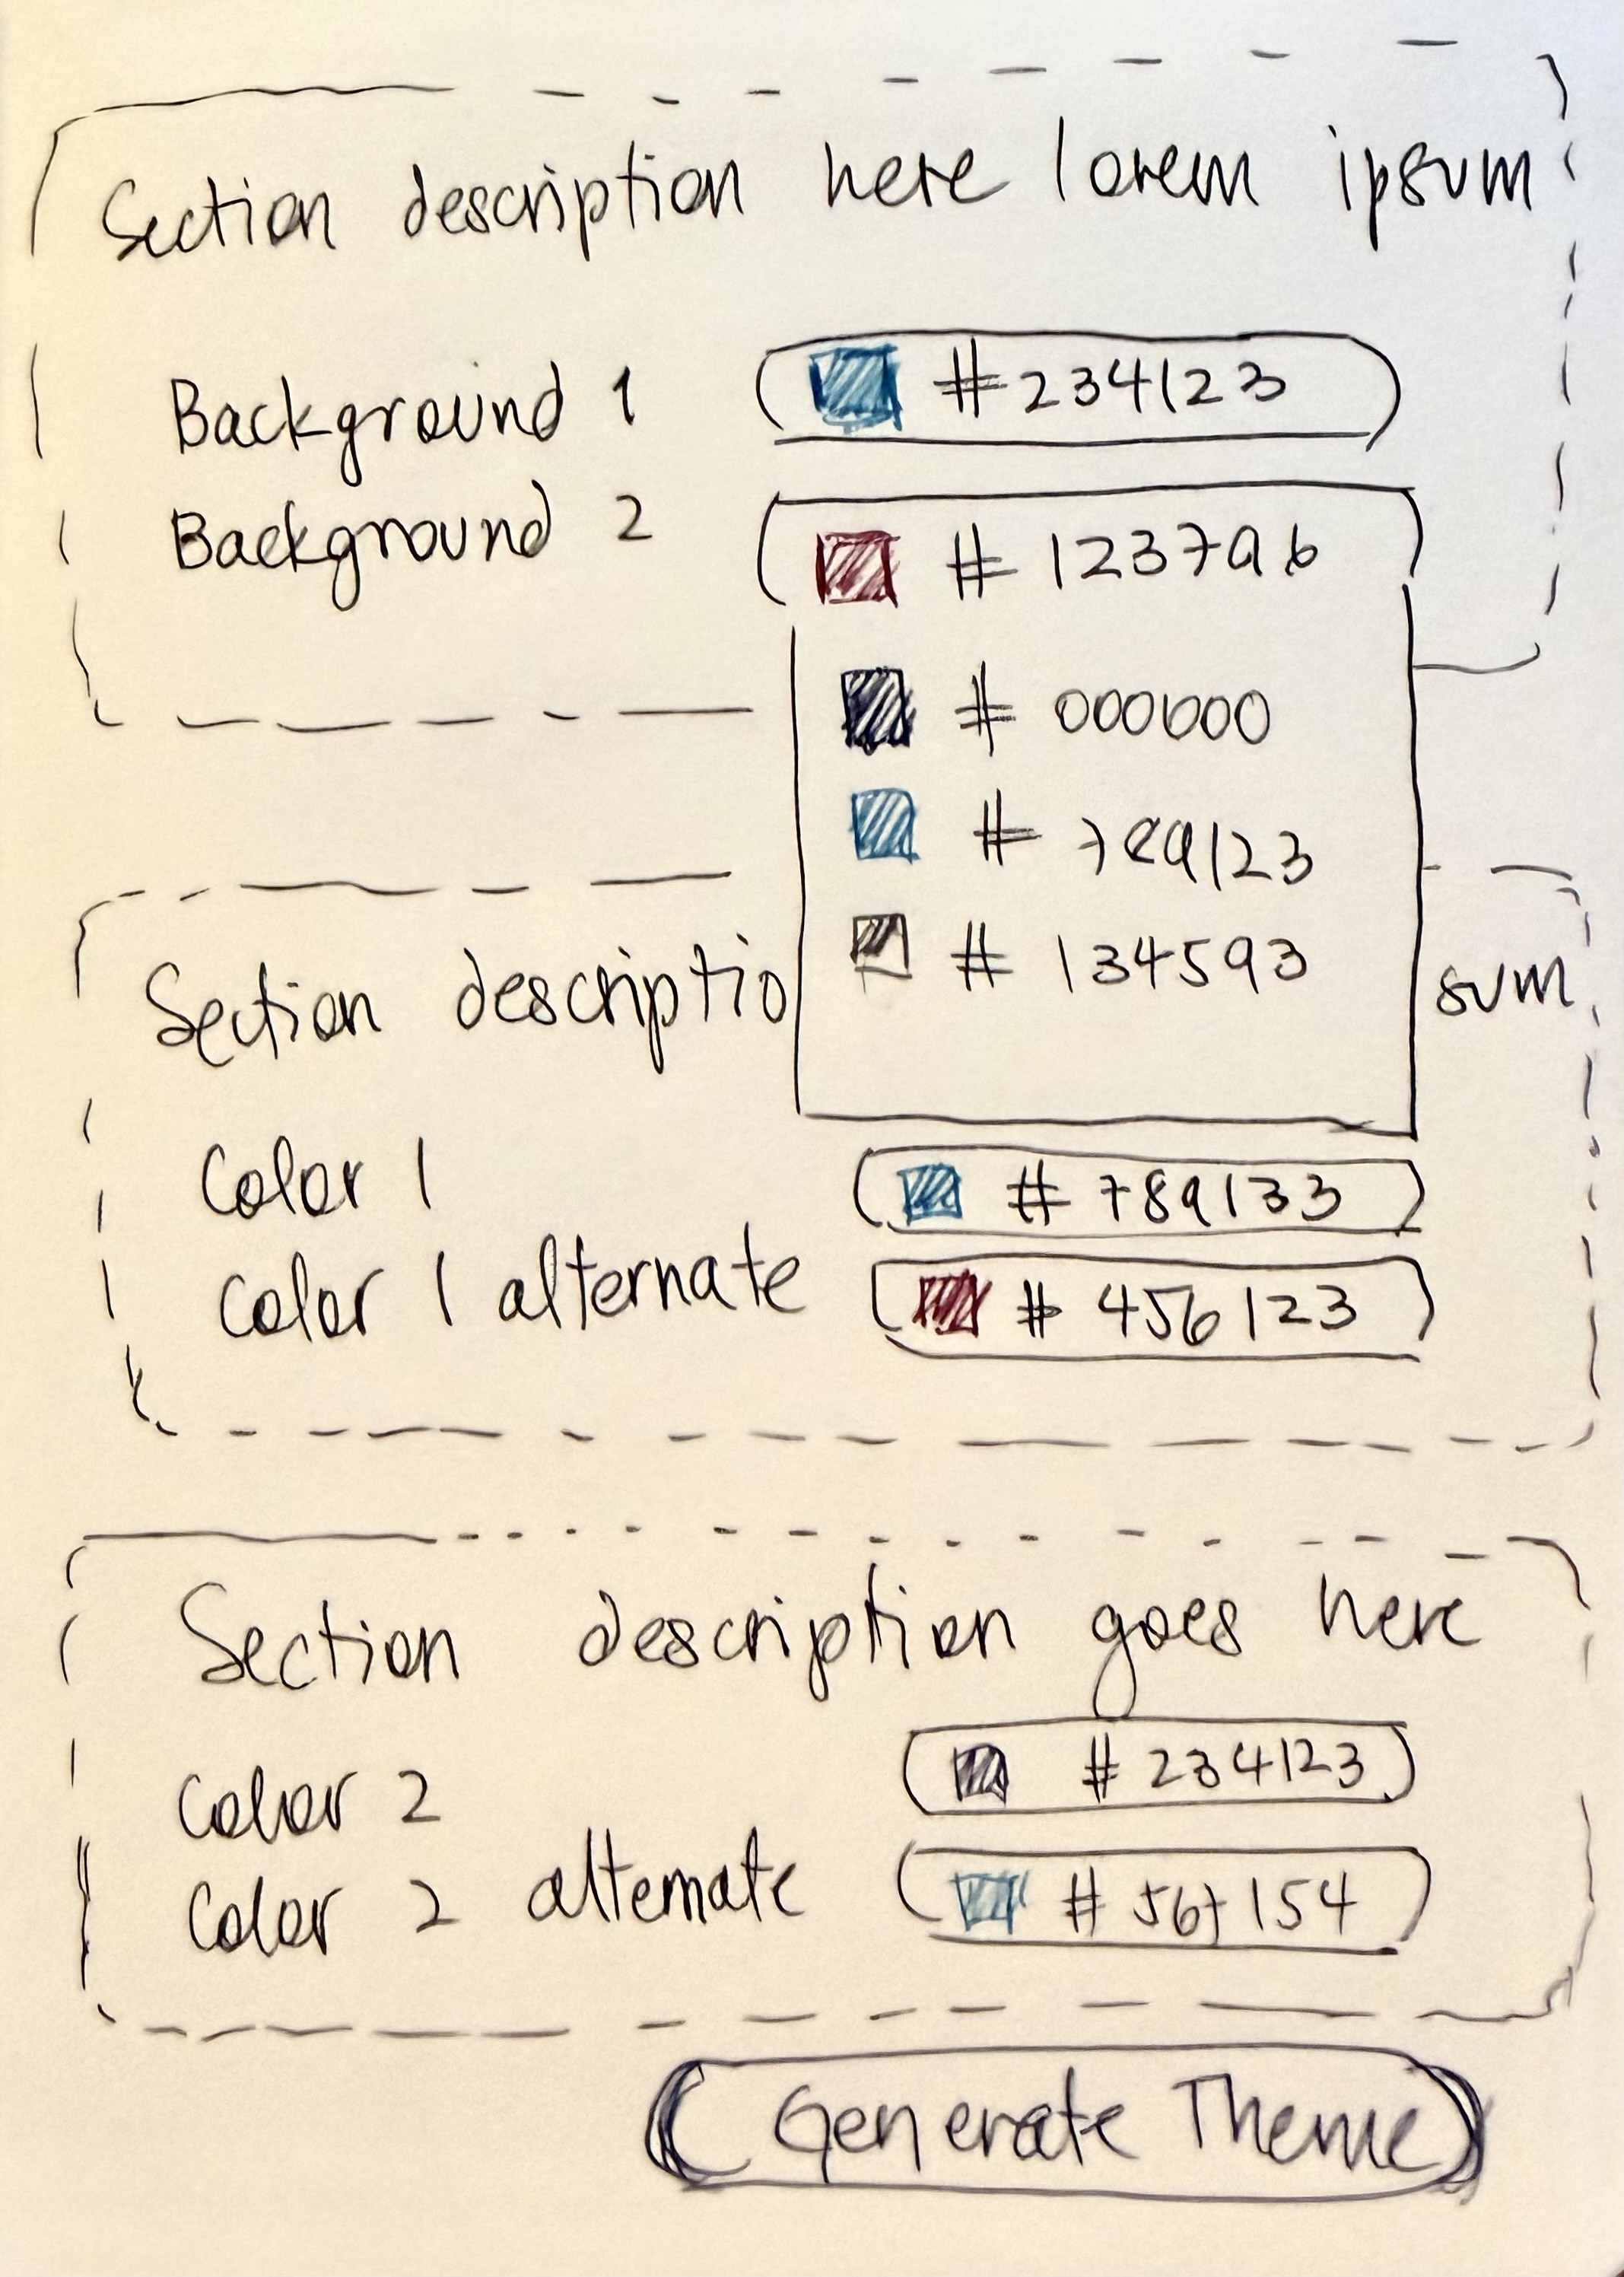 Section description here lorem ipsum
Background 1 #234123
Background 2 # 123796
# 000000
# 789123
# 134593
Section descriptio sum
Color 1 # 789133
Color 1 alternate # 456123
Section description goes here
Color 2 # 234123
Color 2 alternate # 567154
Generate Theme